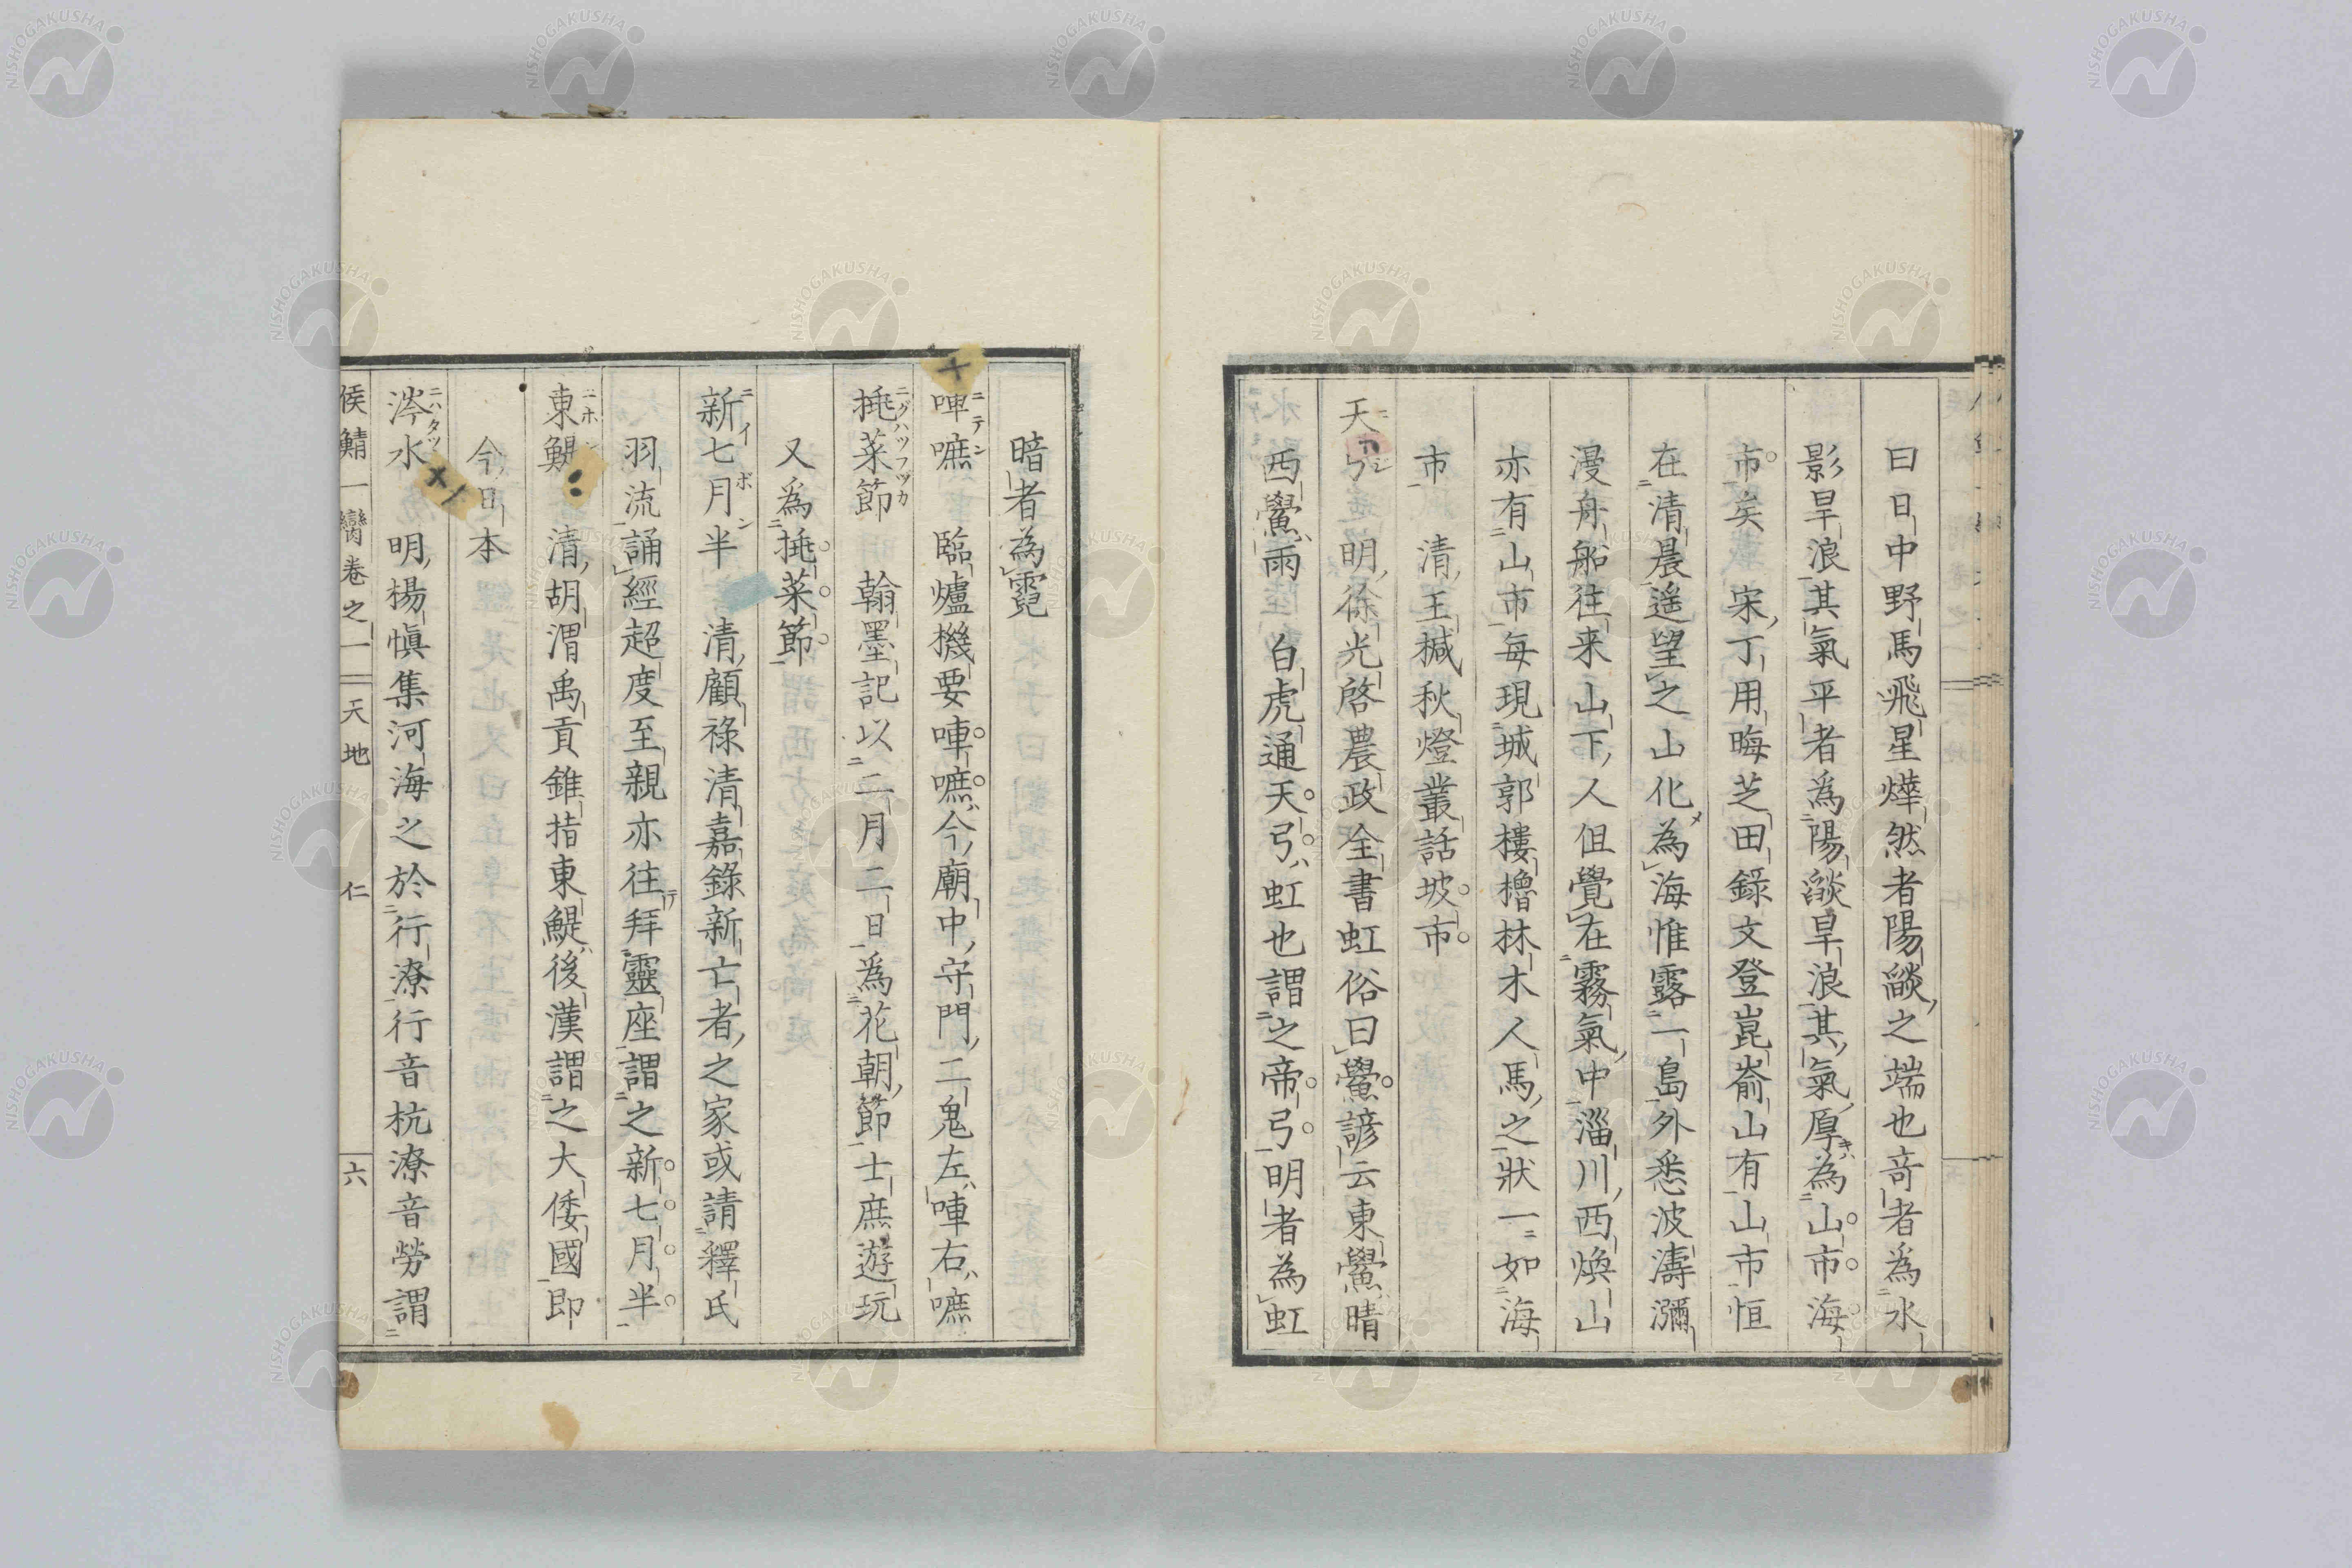 曰日中野馬飛星燁然者陽燄之端也奇者爲水
影旱浪其氣平者爲陽燄旱浪其氣厚為山市海
市矣 宋丁用晦芝田錄文登崑崙山有山市恒
在清晨遥望之山化為海惟露一島外悉波濤瀰
漫舟船往来山下人但覺在霧氣中淄川西煥山
亦有山市每現城郭樓櫓林木人馬之狀一如海
市 清王椷秋燈叢話坡市
天 明徐光啓農政全書虹俗曰鱟諺云東鱟晴
西鱟雨 白虎通天弓虹也謂之帝弓明者為虹
暗者為霓
唓嗻 臨爐機要唓嗻今廟中守門二鬼左唓右嗻
挑菜節 翰墨記以二月二日爲花朝節士庶遊玩
又爲挑菜節
新七月半 清顧祿清嘉錄新亡者之家或請釋氏
羽流誦經超度至親亦往拜靈座謂之新七月半
東鯷 清胡渭禹貢錐指東鯷後漢謂之大倭國即
今日本
涔水 明楊愼集河海之於行潦行音杭潦音勞謂
侯鯖一臠卷之一 天地 仁 六
NISHOGAKUSHA